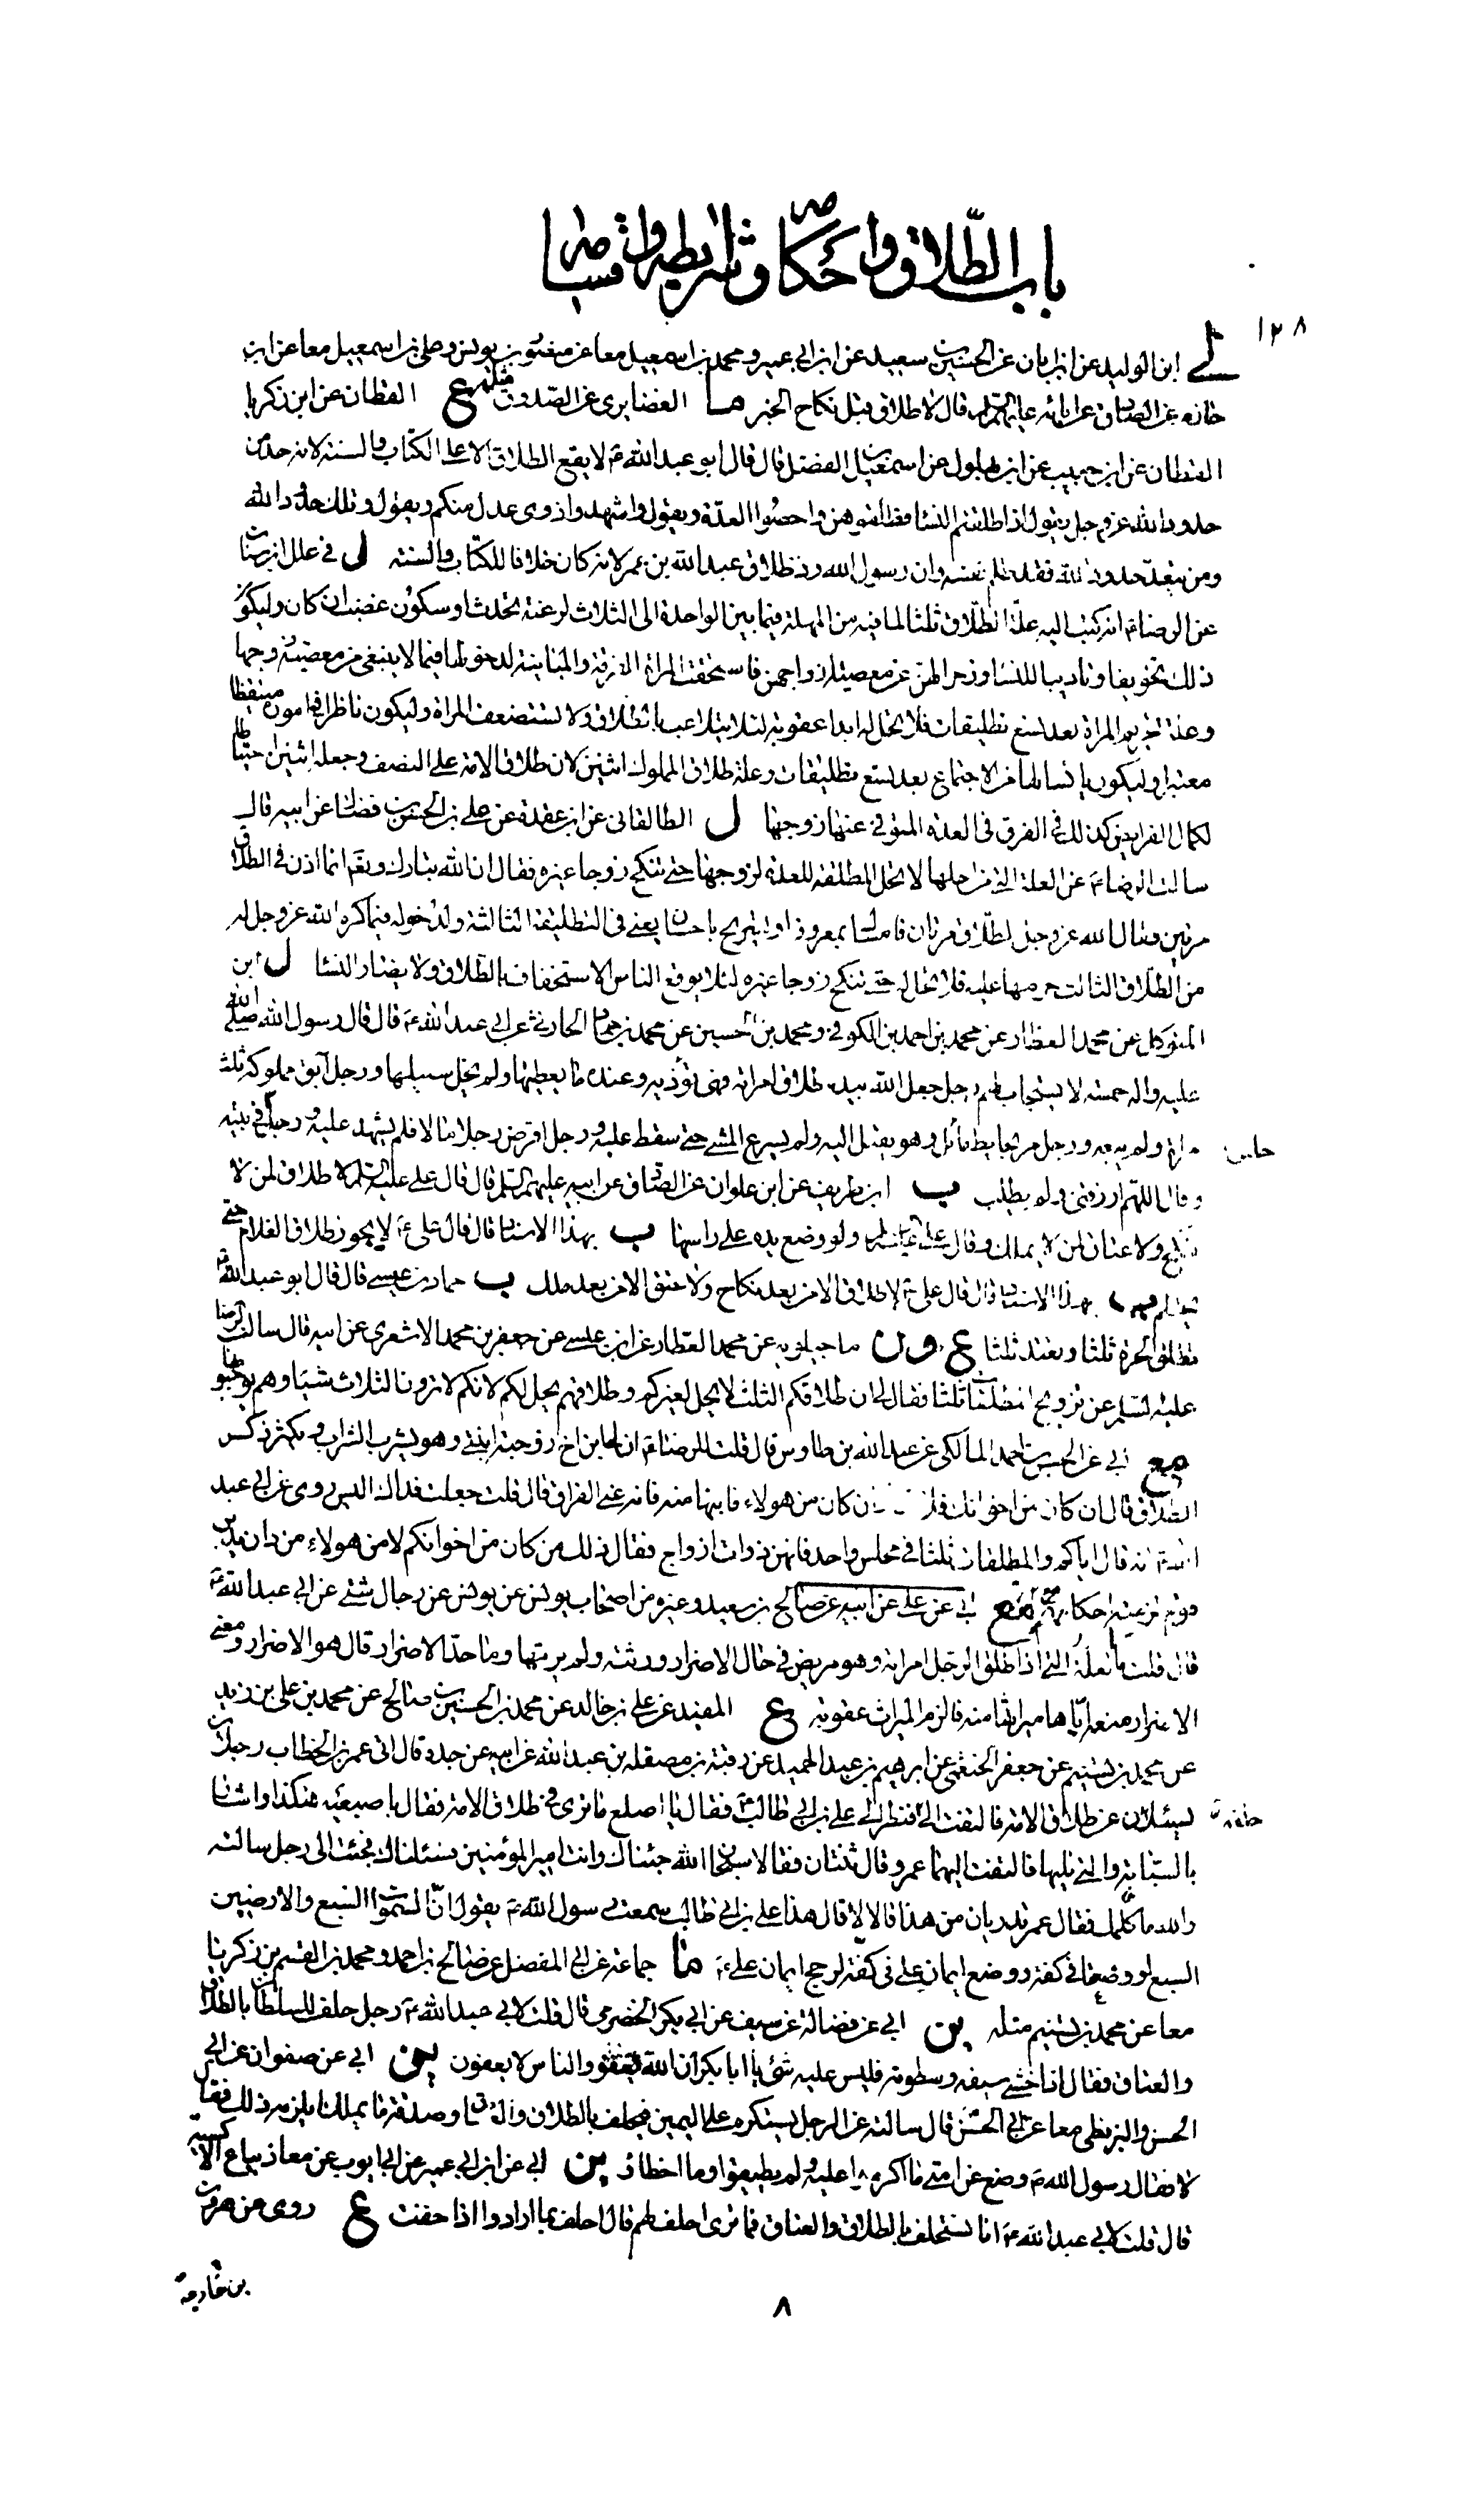 باب الطلاق واحكامه وشرايطه واقسامه
١٢٨
لى ابن الوليد عن ابن ابان عن الحسين بن سعيد عن ابن ابى عمير ومحمد بن اسمعيل معا عن منصور بن يونس وعلى بن اسمعيل معا عن ابن
حازم عن الصادق عن ابائه عليهم السلم قال لا طلاق قبل نكاح الخبر ما الغضايرى عن الصدوق مثله ع القطان عن ابن زكريا
القطان عن ابن حبيب عن ابن بهلول عن اسمعيل بن الفضل قال قال ابو عبد الله ع لا يقع الطلاق الا على الكتاب والسنة لانه حد من
حدود الله عز وجل يقول اذا طلقتم النسا فطلقوهن واحصوا العدة ويقول واشهدوا ذوى عدل منكم ويقول وتلك حدود الله
ومن يتعد حدود الله فقد ظلم نفسه وان رسول الله رد طلاق عبد الله بن عمر لانه كان خلافا للكتاب والسنة ل فى علل ابن سنان
عن الرضا ع انه كتب اليه علة الطلاق ثلثا لما فيه من المهلة فيما بين الواحدة الى الثلاث لرغبة تحدث او سكون غضب ان كان وليكون
ذلك تخويفا وتاديبا للنسا وزجرا لهن عن معصية ازواجهن فاستحقت المراة الفرقة والمباينة لدخولها فيما لا ينبغى من معصية زوجها
وعلة تحريم المراة بعد تسع تطليقات فلا تحل له ابدا عقوبة لئلا يتلاعب بالطلاق ولا تستضعف المراة وليكون ناظرا فى اموره متيقظا
معتبرا وليكون يائسا لها من الاجتماع بعد تسع تطليقات وعلة طلاق المملوك اثنين لان طلاق الامة على النصف وجعله اثنين احتياطا
لكمال الفرايض كذلك فى الفرق فى العدة المتوفى عنها زوجها ل الطالقانى عن ابن عقدة عن على بن الحسن بن فضال عن ابيه قال
سالت الرضا ع عن العلة التى من اجلها لا تحل المطلقة للعدة لزوجها حتى تنكح زوجا غيره فقال ان الله تبارك وتعم انما اذن فى الطلاق
مرتين فقال الله عز وجل الطلاق مرتان فامساك بمعروف او تسريح باحسان يعنى فى التطليقة الثالثة ولدخوله فيما كره الله عز وجل له
من الطلاق الثالث حرمها عليه فلا تحل له حتى تنكح زوجا غيره لئلا يوقع الناس الاستخفاف بالطلاق ولا يضار النسا ل ابن
المتوكل عن محمد العطار عن محمد بن احمد بن الكوفى ومحمد بن الحسين عن محمد بن حماد الحارثى عن ابى عبد الله ع قال قال رسول الله صلى الله
عليه واله خمسة لا يستجاب لهم رجل جعل الله بيده طلاق امراته فهى تؤذيه وعنده ما يعطيها ولم يخل سبيلها ورجل ابق مملوكه ثلث
مرات ولم يبعه ورجل مر بحايط مائل وهو يقبل اليه ولم يسرع المشى حتى سقط عليه ورجل اقرض رجلا مالا فلم يشهد عليه ورجل فى بيته
وقال اللهم ارزقنى ولم يطلب ب ابن طريف عن ابن علوان عن الصادق عن ابيه عليهم السلم قال قال على عليه السلم لا طلاق لمن لا
ينكح ولا عتاق لمن لا يملك وقال على عليه السلم ولو وضع يده على راسها ب بهذا الاسناد قال قال على ع لا يجوز طلاق الغلام حتى
يحتلم ب بهذا الاسناد قال قال على ع لا طلاق الا من بعد نكاح ولا عتق الا من بعد ملك ب حماد بن عيسى قال قال ابو عبد الله ع
تطلق الحرة ثلثا وتعتد ثلثا ع ون ماجيلويه عن محمد العطار عن ابن عيسى عن جعفر بن محمد الاشعرى عن ابيه قال سالت الرضا
عليه السلم عن تزويج المطلقات ثلثا فقال لى ان طلاقكم الثلث لا يحل لغيركم وطلاقهم يحل لكم لانكم لا ترون الثلاث شيئا وهم يوجبونها
مع ابى عن الحسين بن احمد المالكى عن عبد الله بن طاوس قال قلت للرضا ع ان لى ابن اخ زوجته ابنتى وهو يشرب الشراب ويكثر ذكر
الطلاق قال ان كان من اخوانك فلا ان كان من هولاء فابنها منه فانه عنى الفراق قال قلت جعلت فداك اليس روى عن ابى عبد
الله ع انه قال اياكم والمطلقات ثلثا فى مجلس واحد فانهن ذوات ازواج فقال ذلك من كان من اخوانكم لا من هولاء من دان بدين
قوم لزمته احكامهم مع ابى عن على عن ابيه عن صالح بن سعيد وغيره من اصحاب يونس عن يونس عن رجال شتى عن ابى عبد الله ع
قال قلت ما العلة التى اذا طلق الرجل امراته وهو مريض فى حال الاضرار ورثته ولم يرثها وما حد الاضرار قال هو الاضرار ومعنى
الاضرار منعه اياها ميراثها منه فالزم الميراث عقوبة ع المفيد عن على بن خالد عن محمد بن الحسين بن صالح عن محمد بن على بن زيد
عن محمد بن تسنيم عن جعفر الخثعمى عن ابرهيم بن عبد الحميد عن رقبة بن مصقلة بن عبد الله عن ابيه عن جده قال اتى عمر بن الخطاب رجلان
يسئلان عن طلاق الامة فالتفت الى خلفه فنظر الى على بن ابى طالب ع فقال يا اصلع ما ترى فى طلاق الامة فقال باصبعيه هكذا واشار
بالسبابة والتى تليها فالتفت اليهما عمر وقال ثنتان فقالا سبحان الله جئناك وانت امير المؤمنين فسئلناك فجئت الى رجل سالته
والله ما كلمك فقال عمر تدريان من هذا قالا لا قال هذا على بن ابى طالب سمعت رسول الله ع يقول ان السموات السبع والارضين
السبع لو وضعتا فى كفة ووضع ايمان على فى كفة لرجح ايمان على ع ما جماعة عن ابى المفضل عن صالح بن احمد ومحمد بن القسم بن زكريا
معا عن محمد بن تسنيم مثله ين ابى عن فضالة عن سيف عن ابى بكر الحضرمى قال قلت لابى عبد الله ع رجل حلف للسلطان بالطلاق
والعتاق فقال اذا خشى سيفه وسطوته فليس عليه شئ يا ابا بكر ان الله يعفو والناس لا يعفون ين ابى عن صفوان عن ابى
الحسن والبزنطى معا عن ابى الحسن قال سالته عن الرجل يستكره على اليمين فيحلف بالطلاق والعتاق وصدقة ما يملك ايلزمه ذلك فقال
لا فقال رسول الله ع وضع عن امتى ما اكرهوا عليه ولم يطيقوا وما اخطاوا ين ابى عن ابن ابى عمير عن ابى ايوب عن معاذ بياع الاكسية
قال قلت لابى عبد الله ع انا نستحلف بالطلاق والعتاق فما ترى احلف لهم قال احلف بما ارادوا اذا خفت ع روى عن هرون
بن خارجة
٨